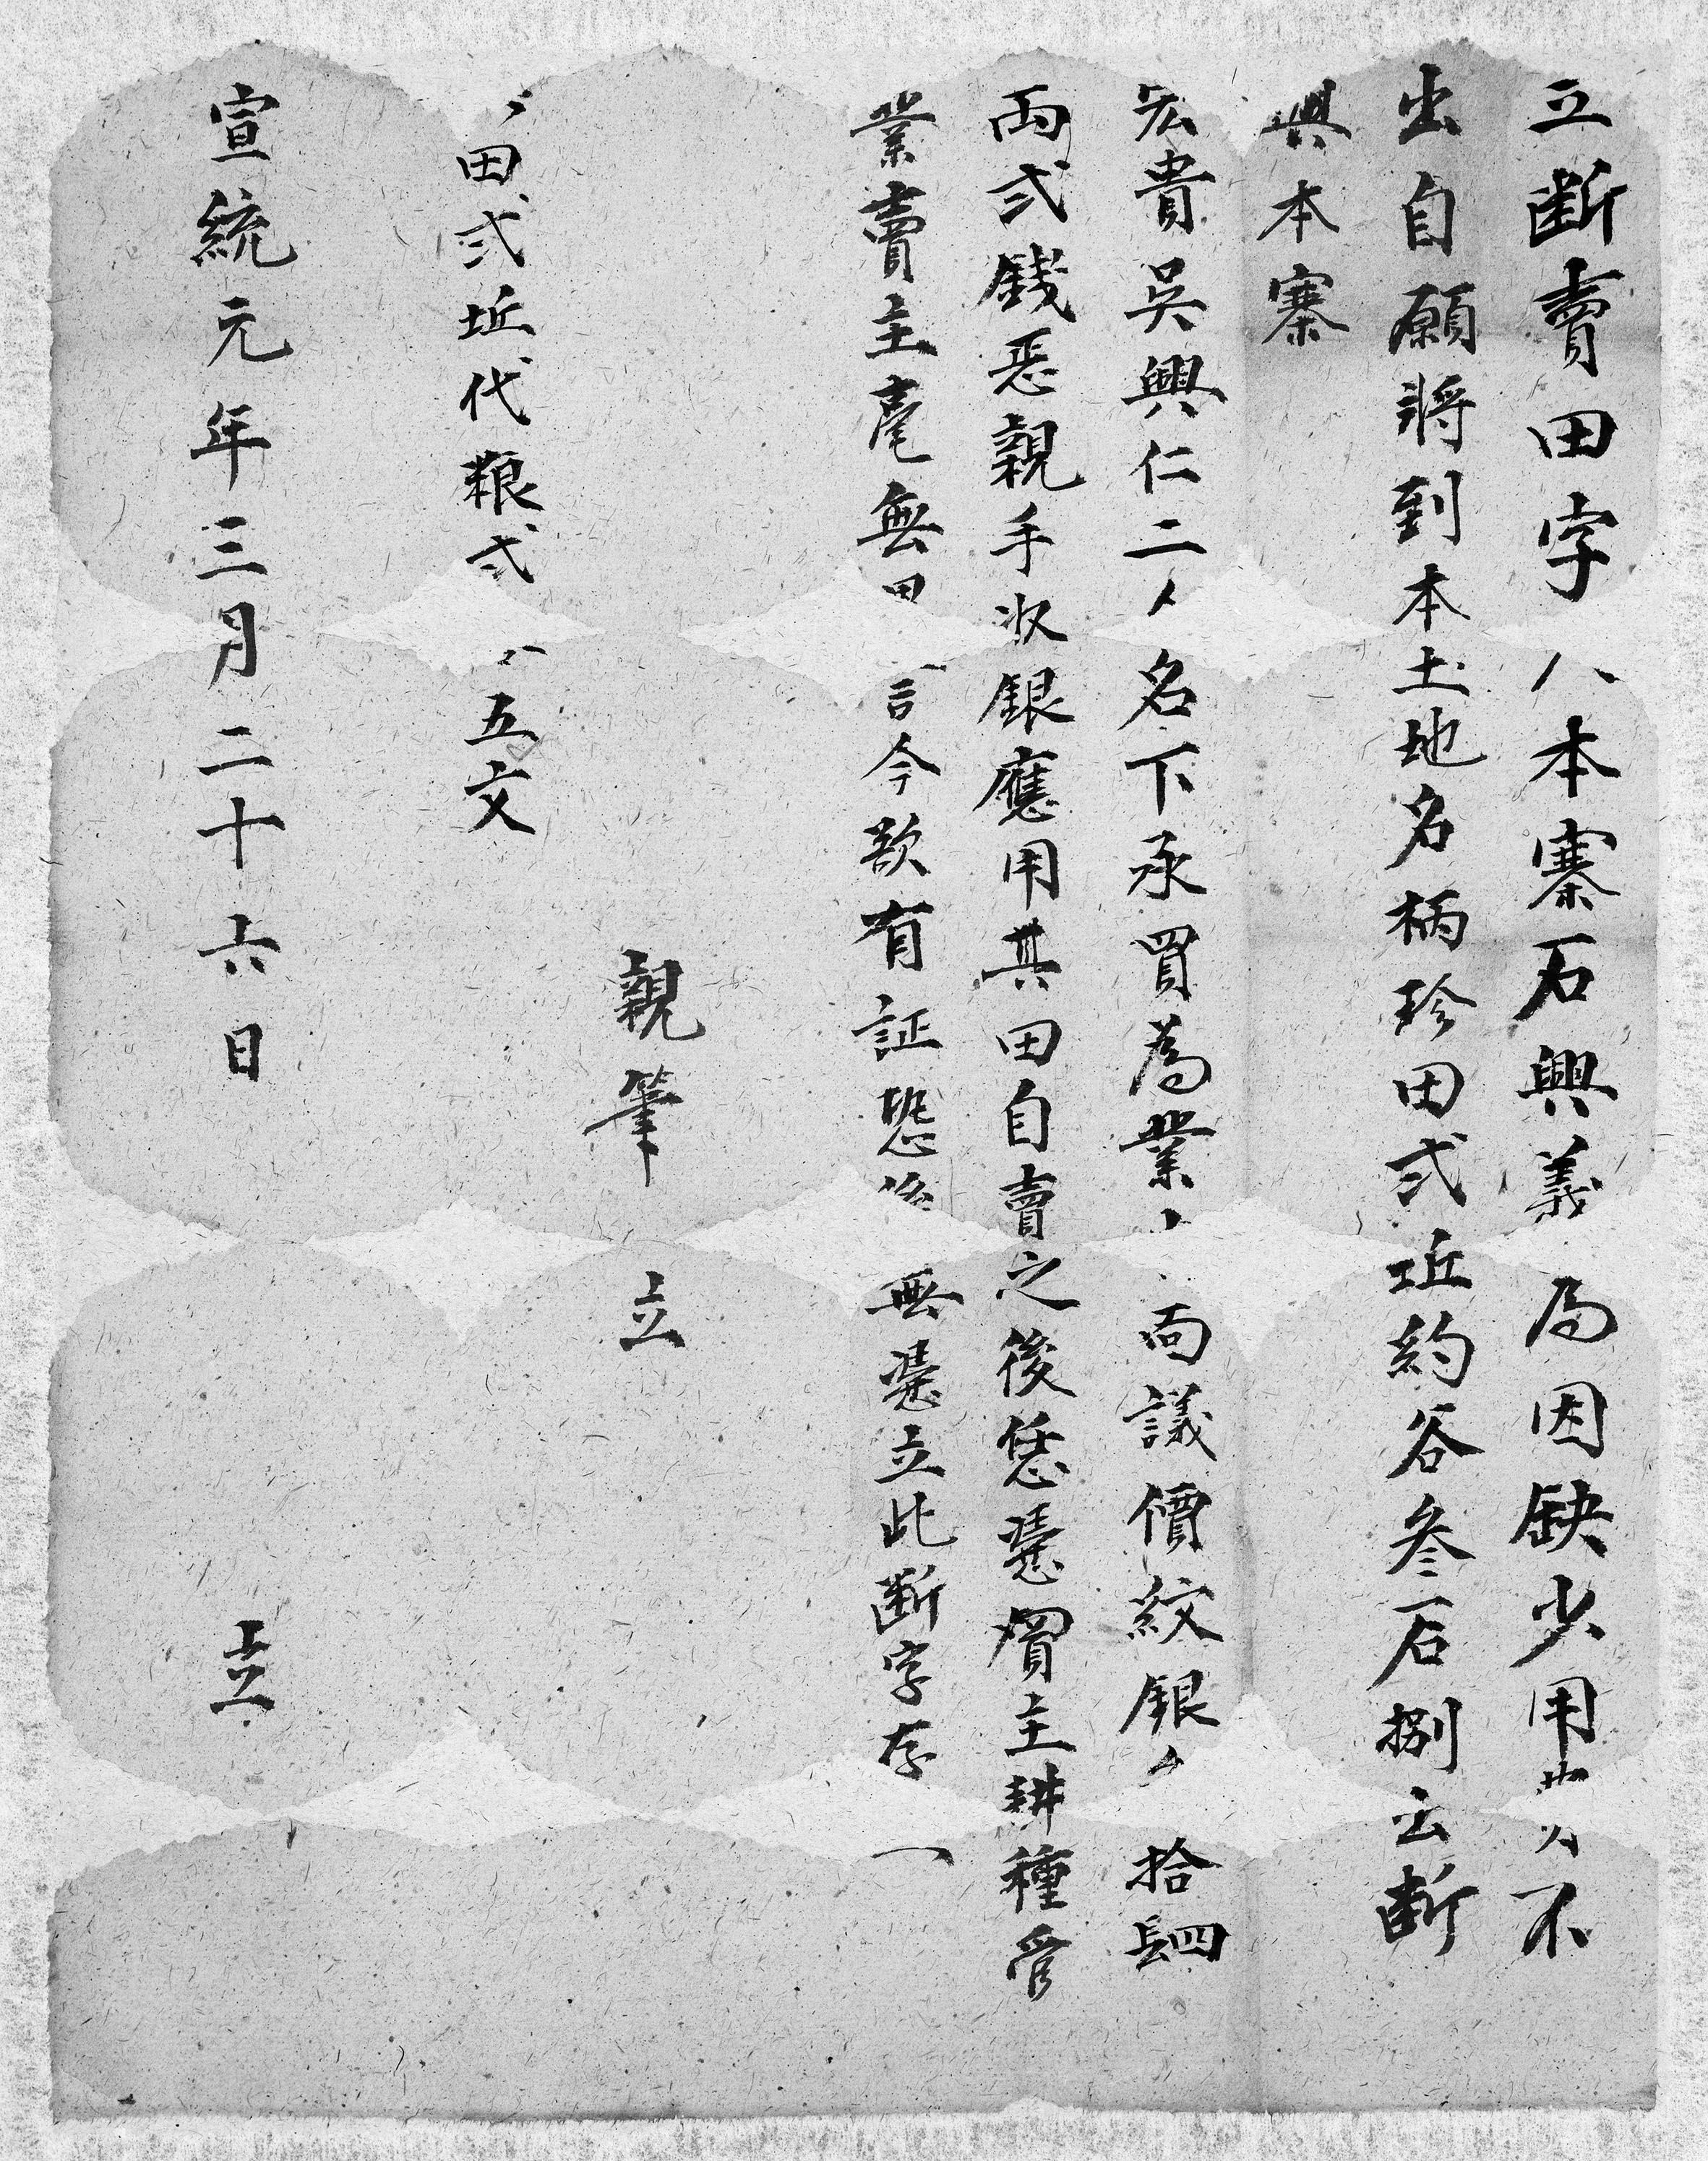 立断賣田字人本寨石興義為因缺少用無从不
出自願將到本土地名柄珍田弍坵約谷叁石捌斗断
與本寨
宏貴吳興仁二人名下承買為業面議價紋銀拾肆
両弍錢恁親手收銀應用其田自賣之後恁憑買主耕種管
業賣主毫無田言今欲有証恐後無憑立此断字存
親筆 立
田弍坵代粮弍五文
宣統元年三月二十六日 立